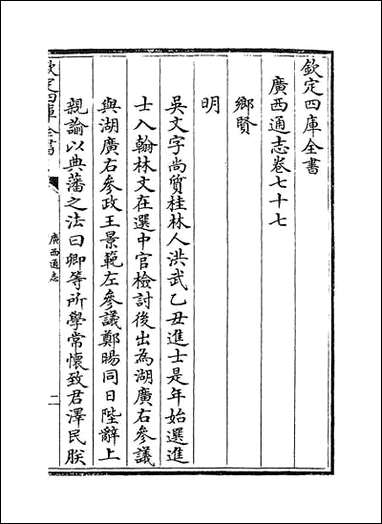 欽定四庫全書
廣西通志卷七十七
鄉賢
明
吳文字尚質桂林人洪武乙丑進士是年始選進
士入翰林文在選中官檢討後出為湖廣右參議
與湖廣右參政王景範左參議鄭暘同日陛辭上
親諭以典藩之法曰卿等所學常懷致君澤民朕
欽定四庫全書
廣西通志